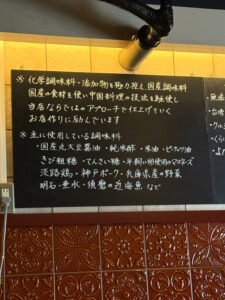 ※ 化学調味料・添加物を極力控え、国産調味料
国産の食材を使い中国料理の技法を駆使し
当店ならではのアプローチで仕上げていく
お店作りに励んでいます
※ 主に使用している調味料
・国産丸大豆醤油・純米酢・米油・ピーナッツ油
きび粗糖・てんさい糖・平飼い卵使用のマヨネーズ
淡路鶏・神戸ポーク・兵庫県産の野菜
明石・垂水・須磨の近海魚 など
・無添
・台湾
・クルミ
・くらげ